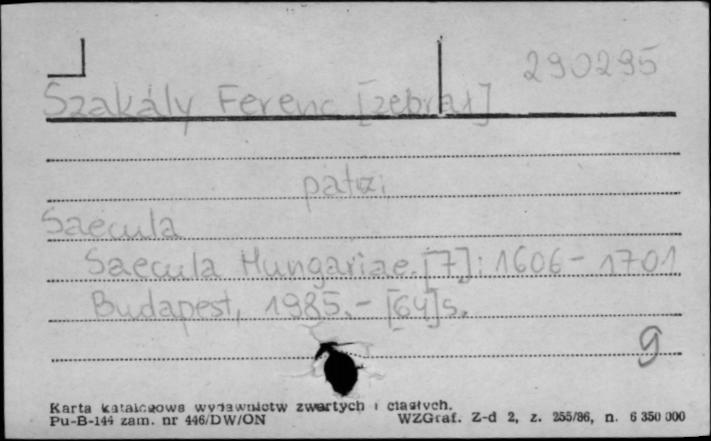 290295
Szakály Ferenc [zebrał]
patrz:
Saecula
Saecula Hungariae. [7]: 1606 - 1701
Budapest, 1985. - [64] s.
g
Karta katalogowa wydawnictw zwartych i ciągłych.
Pu-B-144 zam. nr 446/DW/ON WZGraf. Z-d 2, z. 255/86, n. 6 350 000